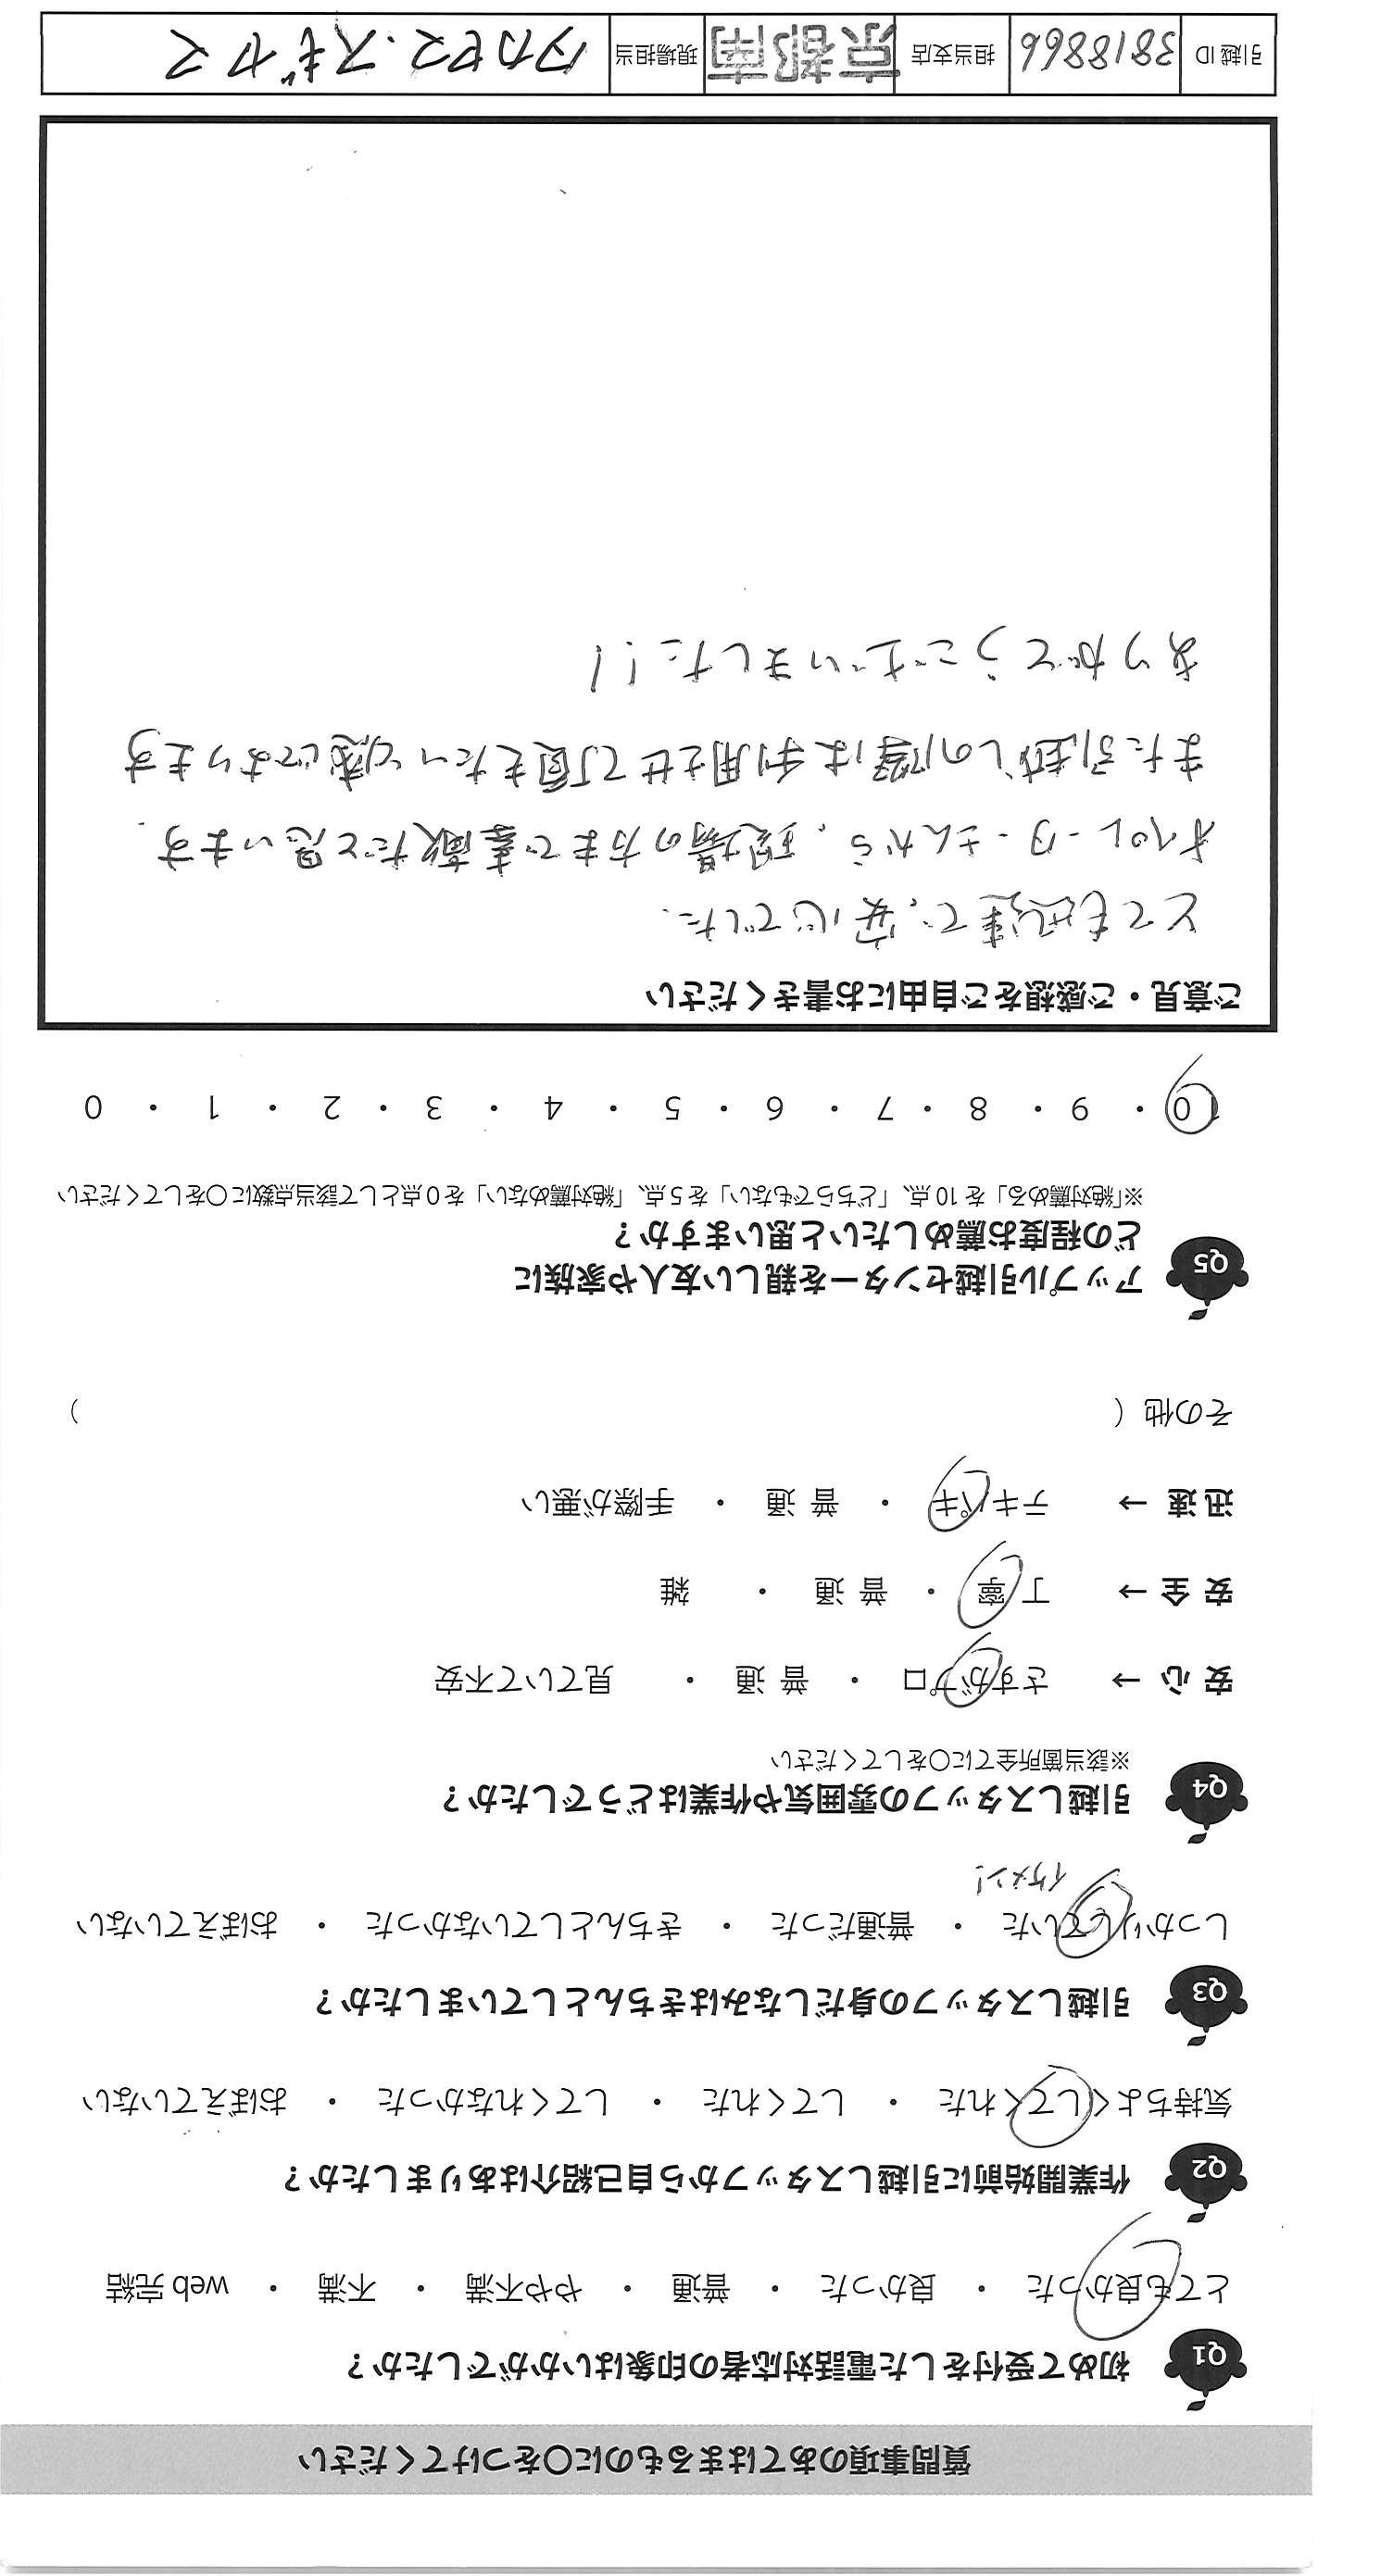 質問事項のあてはまるものに○をつけてください
Q1 初めて受付をした電話対応者の印象はいかがでしたか？
とても良かった ・ 良かった ・ 普通 ・ やや不満 ・ 不満 ・ web 完結
Q2 作業開始前に引越しスタッフから自己紹介はありましたか？
気持ちよくしてくれた ・ してくれた ・ してくれなかった ・ おぼえていない
Q3 引越しスタッフの身だしなみはきちんとしていましたか？
しっかりしていた ・ 普通だった ・ きちんとしていなかった ・ おぼえていない
イケメン!
Q4 引越しスタッフの雰囲気や作業はどうでしたか？
※該当箇所全てに○をしてください
安 心 → さすがプロ ・ 普 通 ・ 見ていて不安
安 全 → 丁 寧 ・ 普 通 ・ 雑
迅 速 → テキパキ ・ 普 通 ・ 手際が悪い
その他（ ）
Q5 アップル引越センターを親しい友人や家族に
どの程度お薦めしたいと思いますか？
※「絶対薦める」を 10 点、「どちらでもない」を 5 点、「絶対薦めない」を 0 点として該当点数に○をしてください
10 ・ 9 ・ 8 ・ 7 ・ 6 ・ 5 ・ 4 ・ 3 ・ 2 ・ 1 ・ 0
ご意見・ご感想をご自由にお書きください
とても迅速で、安心でした.
オペレーターさんから、現場の方まで素敵だと思います.
また引越しの際は利用させて頂きたいと感じております
ありがとうございました!!
引越 ID 3818866 担当支店 京都南 現場担当 タカセマ.スギヤマ